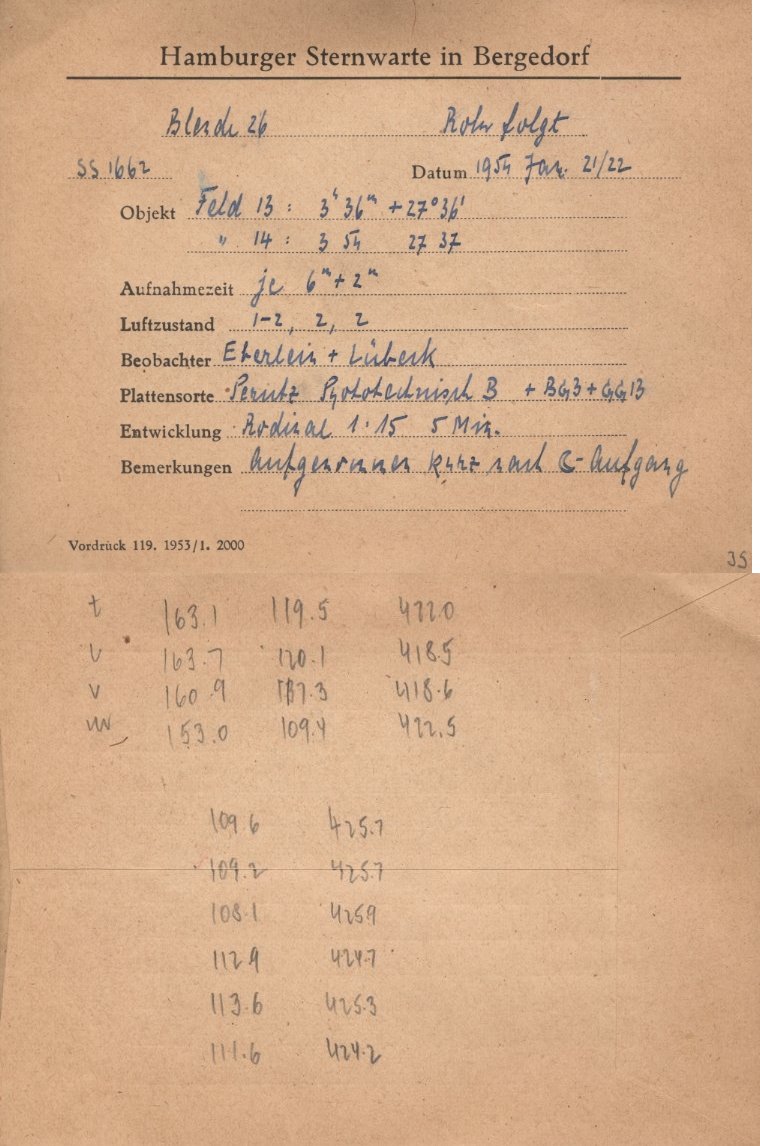 Hamburger Sternwarte in Bergedorf
Blende 26 Rohr folgt
SS 1662 Datum 1954 Jan. 21/22
Objekt Feld 13 : 3ʰ 36ᵐ +27°36'
" 14 : 3 54 27 37
Aufnahmezeit je 6ᵐ + 2ᵐ
Luftzustand 1-2, 2, 2
Beobachter Eberlein + Lübeck
Plattensorte Perutz Phototechnisch B + BG3 + GG13
Entwicklung Rodinal 1:15 5 Min.
Bemerkungen Aufgenommen kurz nach ☾-Aufgang
Vordruck 119. 1953/1. 2000
35
t 163.1 119.5 422.0
u 163.7 120.1 418.5
v 160.9 117.3 418.6
w 153.0 109.4 422.5
109.6 425.7
109.2 425.7
108.1 425.9
112.9 424.7
113.6 425.3
111.6 424.2